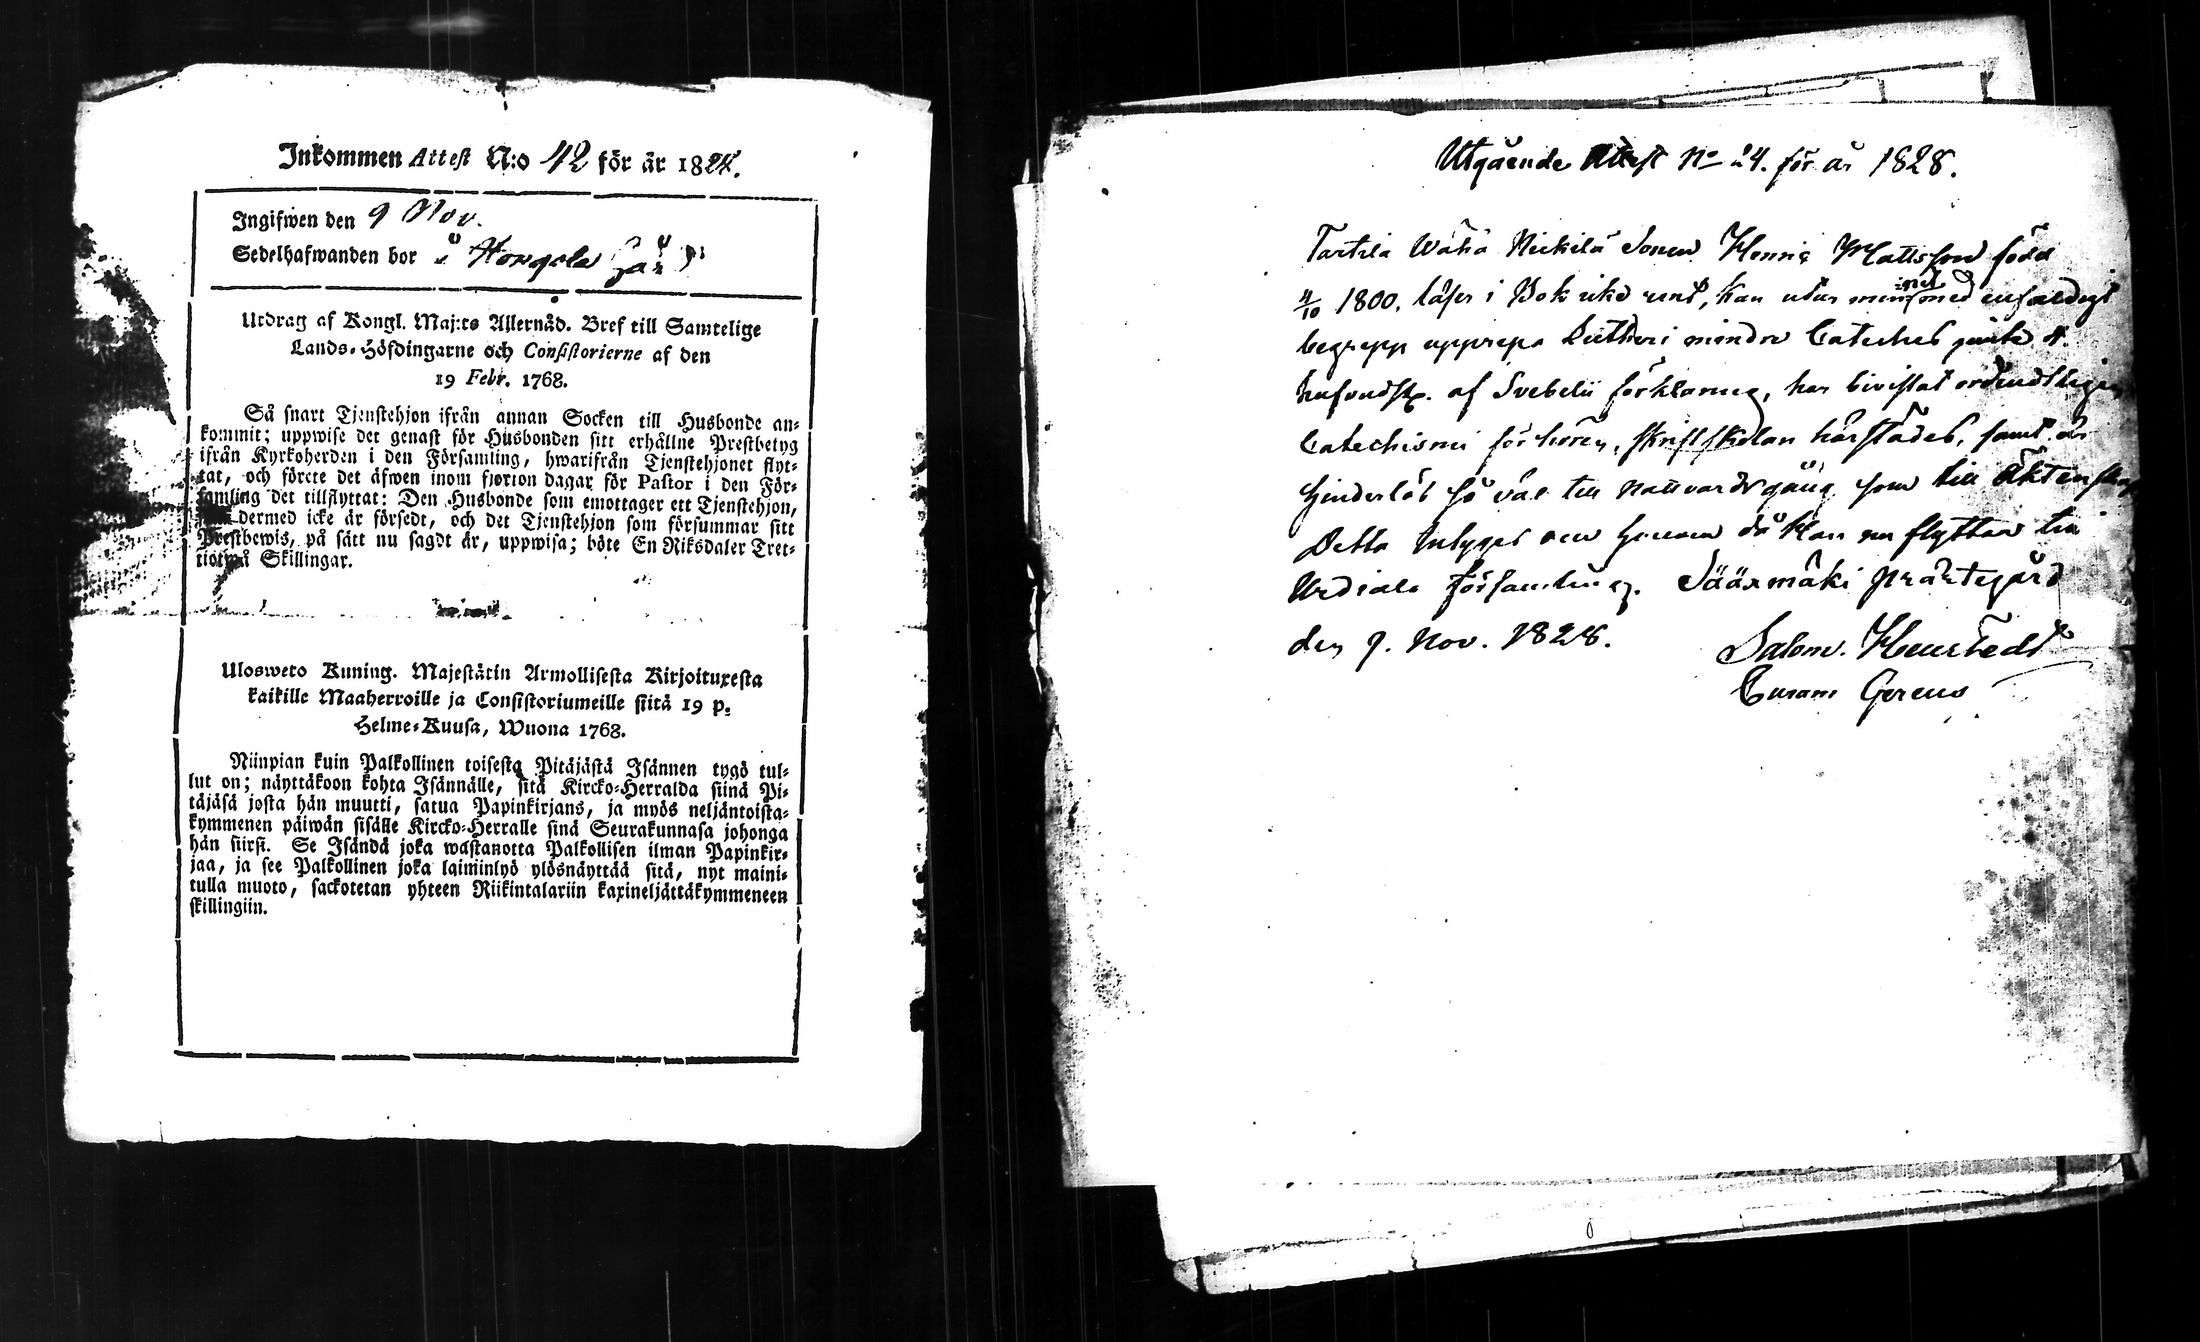 Inkommen Attest N:o 42 för år 1828.
Ingifwen den 9 Nov.
Sedelhafwanden bor i Hongola
Utdrag af Kongl. Maj:ts Allernåd. Bref till Samtelige
Lands-Höfdingarne och Consistorierne af den
19 Febr. 1768.
Så snart Tjenstehjon ifrån annan Socken till Husbonde an-
kommit; uppwise det genast för Husbonden sitt erhållne Prestbetyg
ifrån Kyrkoherden i den Församling, hwarifrån Tjenstehjonet flyt-
tat, och förete det äfwen inom fjorton dagar för Pastor i den För-
samling det tillflyttat: Den Husbonde som emottager ett Tjenstehjon,
dermed icke är försedt, och det Tjenstehjon som försummar sitt
Prestbewis, på sätt nu sagdt är, uppwisa; böte En Riksdaler Tret-
tiotwå Skillingar.
Ulosweto Kuning. Majestätin Armollisesta Kirjoituxesta
kaikille Maaherroille ja Consistoriumeille siitä 19 p.
Helme-Kuusa, Wuona 1768.
Niinpian kuin Palkollinen toisesta Pitäjästä Isännen tygö tul-
lut on; näyttäkoon kohta Isännälle, sitä Kircko-Herralda siinä Pi-
täjäsä josta hän muutti, satua Papinkirjans, ja myös neljäntoista-
kymmenen päiwän sisälle Kircko-Herralle sinä Seurakunnasa johonga
hän siirsi. Se Isändä joka wastanotta Palkollisen ilman Papinkir-
jaa, ja see Palkollinen joka laiminlyö ylösnäyttää sitä, nyt maini-
tulla muoto, sackotetan yhteen Riikintalariin kaxineljättäkymmeneen
skillingiin.
Utgående Attest No 24. för år 1828.
Tarttila Wähä Nickilä Sonen Henric Mattsson född
4/10 1800, läser i Bok rent, kan utan med enfaldigt
begrepp upprepa Lutheri mindre Cateches jämte
hufvudst. af Svebelii förklaring, har bivistat ordentligen
Catechismi förhören, skriftskolan härstädes, samt är
hinderlös så väl till nattvardsgång som till äktenskap
Detta intygas om honom då Han nu flyttar till
Urdiala Församling. Sääxmäki prästegård
den 9. Nov. 1828.
Salom. Henstedt